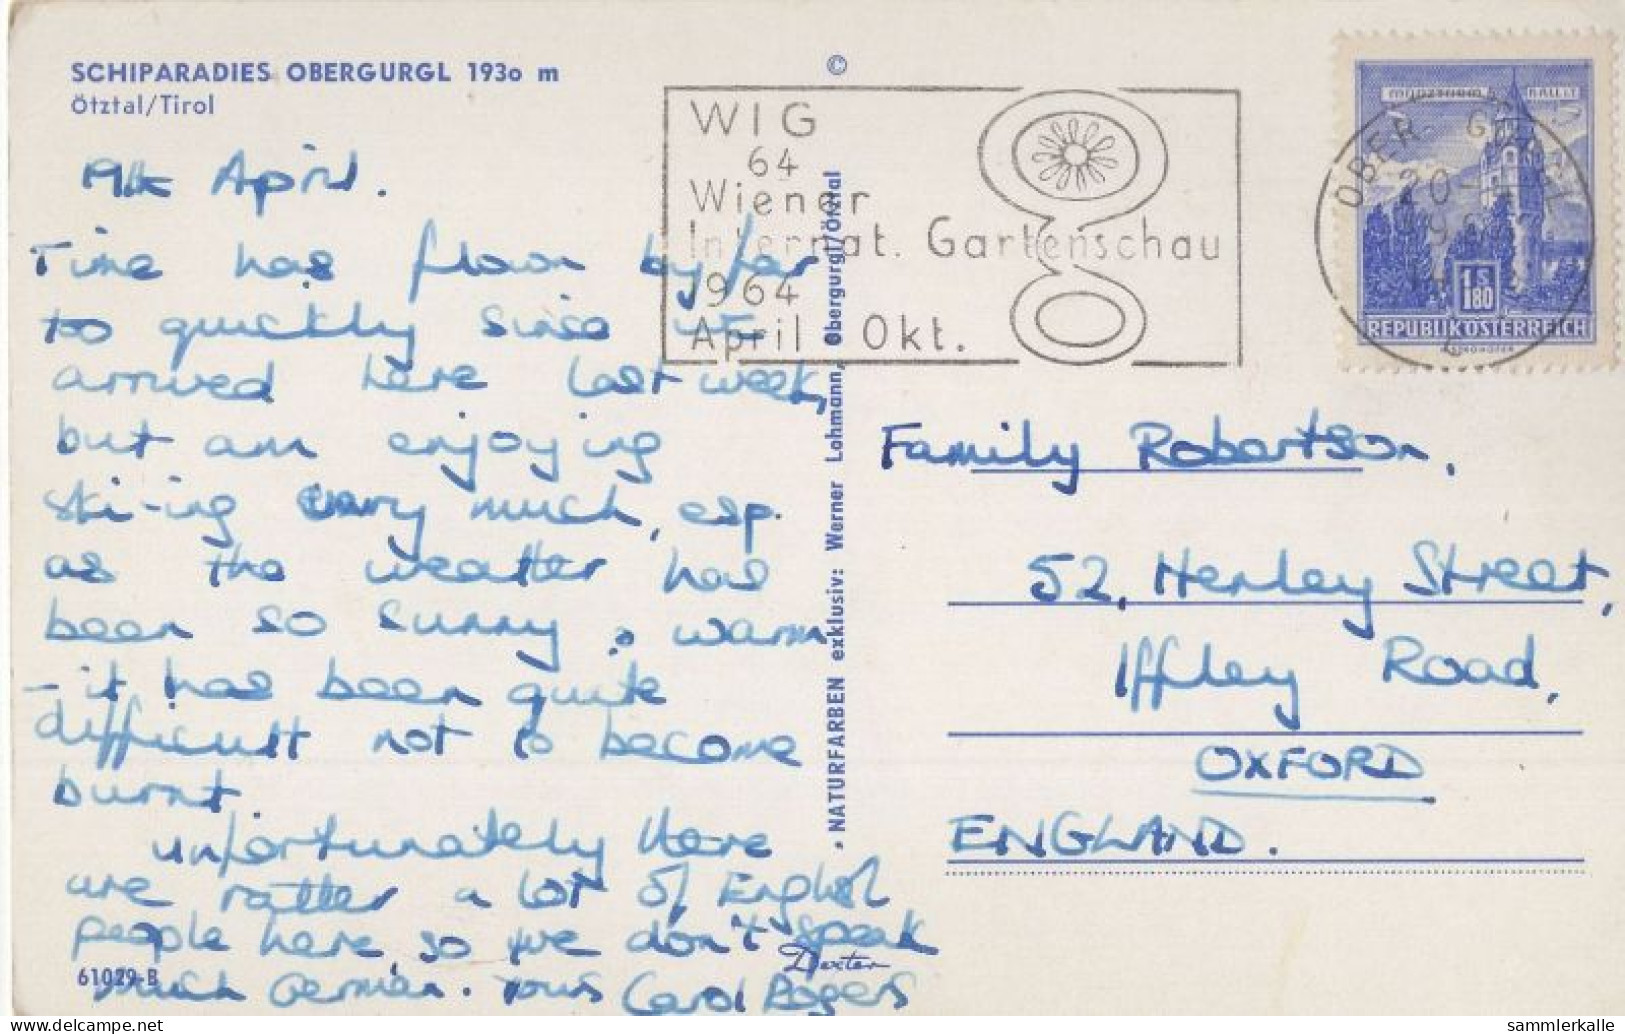 SCHIPARADIES OBERGURGL 1930 m
Ötztal/Tirol
19th April.
Time has flown by far
too quickly since we
arrived here last week,
but am enjoying
ski-ing very much, esp.
as the weather has
been so sunny & warm
- it has been quite
difficult not to become
burnt.
Unfortunately there
are rather a lot of English
people here, so we don't speak
much German. Yours Carol Rogers
61029-B
Dexter
©
NATURFARBEN exklusiv: Werner Lohmann, Obergurgl/Ötztal
WIG
64
Wiener
Internat. Gartenschau
1964
April Okt.
OBER GURGL
20-4
REPUBLIK ÖSTERREICH
1S
180
Family Robertson.
52, Henley Street,
Iffley Road,
OXFORD
ENGLAND.
sammlerkalle